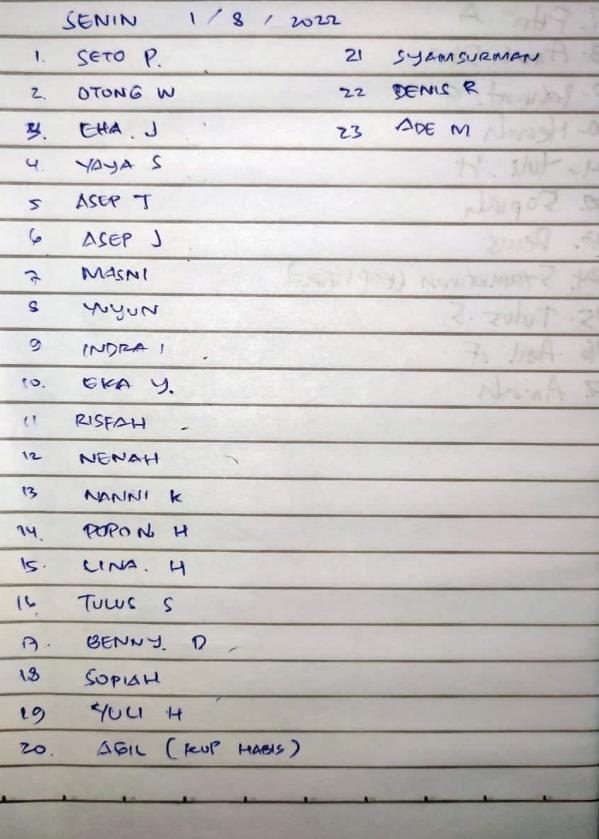 SENIN 1/8/2022
1. SETO P.
2. OTONG W
3. EHA. J
4. YAYA S
5 ASEP T
6 ASEP J
7 MASNI
8 YUYUN
9 INDRA I
10. EKA Y.
11 RISFAH
12 NENAH
13 NANNI K
14. POPON H
15. LINA. H
16 TULUS S
17. BENNY. D
18 SOPIAH
19 YULI H
20. AGIL (KUP HABIS)
21 SYAMSURMAN
22 DENIS R
23 ADE M